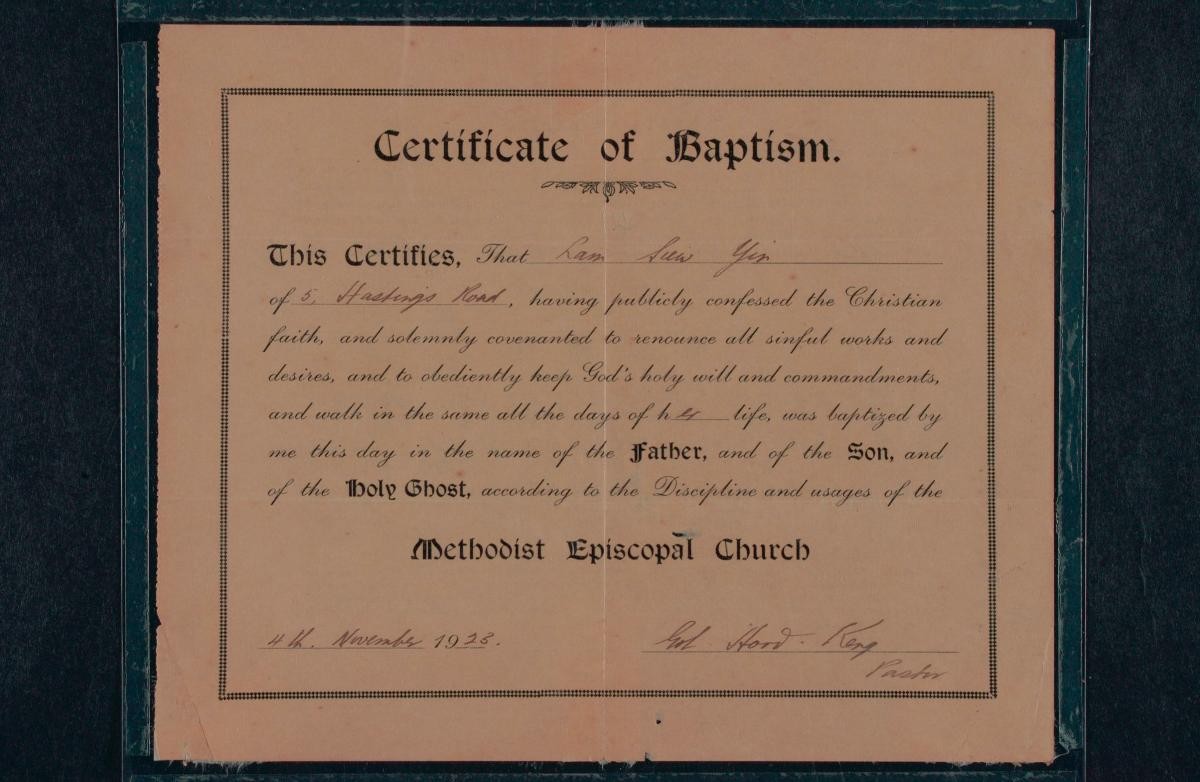 Certificate of Baptism.
This Certifies, That Lam Siew Yin
of 5, Hastings Road, having publicly confessed the Christian
faith, and solemnly covenanted to renounce all sinful works and
desires, and to obediently keep God's holy will and commandments,
and walk in the same all the days of her life, was baptized by
me this day in the name of the Father, and of the Son, and
of the Holy Ghost, according to the Discipline and usages of the
Methodist Episcopal Church
4th. November 1923. Goh Hood Keng
Pastor